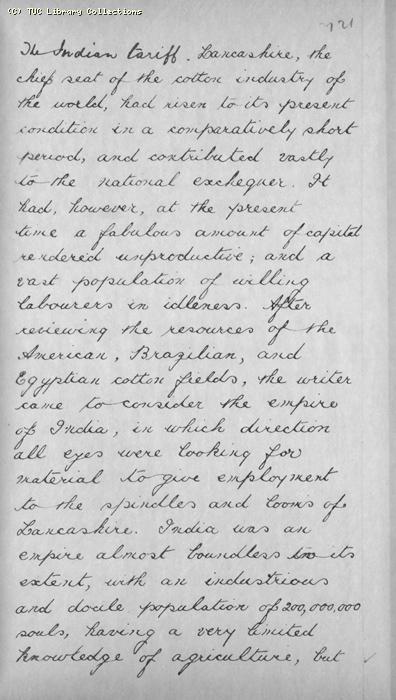 (C) TUC Library Collections
721
The Indian tariff. Lancashire, the
chief seat of the cotton industry of
the world, had risen to its present
condition in a comparatively short
period, and contributed vastly
to the national exchequer. It
had, however, at the present
time a fabulous amount of capital
rendered unproductive; and a
vast population of willing
labourers in idleness. After
reviewing the resources of the
American, Brazilian, and
Egyptian cotton fields, the writer
came to consider the empire
of India, in which direction
all eyes were looking for
material to give employment
to the spindles and looms of
Lancashire. India was an
empire almost boundless in its
extent, with an industrious
and docile population of 200,000,000
souls, having a very limited
knowledge of agriculture, but